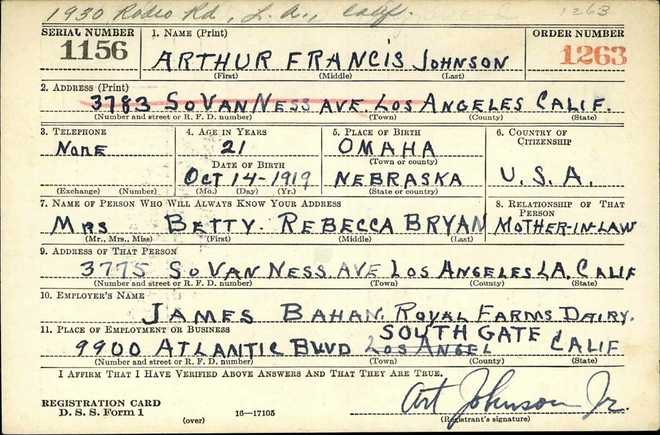 1930 Rodeo Rd, L.A., Calif. 1263
SERIAL NUMBER 1. NAME (Print) ORDER NUMBER
1156 ARTHUR FRANCIS JOHNSON 1263
(First) (Middle) (Last)
2. ADDRESS (Print)
3783 SO VAN NESS AVE. LOS ANGELES CALIF.
(Number and street or R. F. D. number) (Town) (County) (State)
3. TELEPHONE 4. AGE IN YEARS 5. PLACE OF BIRTH 6. COUNTRY OF CITIZENSHIP
NONE 21 OMAHA
(Town or county)
DATE OF BIRTH
OCT 14-1919 NEBRASKA U.S.A.
(Exchange) (Number) (Mo.) (Day) (Yr.) (State or country)
7. NAME OF PERSON WHO WILL ALWAYS KNOW YOUR ADDRESS 8. RELATIONSHIP OF THAT PERSON
MRS BETTY. REBECCA BRYAN MOTHER-IN-LAW
(Mr., Mrs., Miss) (First) (Middle) (Last)
9. ADDRESS OF THAT PERSON
3775 SO VAN NESS AVE LOS ANGELES LA. CALIF
(Number and street or R. F. D. number) (Town) (County) (State)
10. EMPLOYER'S NAME
JAMES BAHAN. ROYAL FARMS DAIRY.
11. PLACE OF EMPLOYMENT OR BUSINESS SOUTH GATE
9900 ATLANTIC BLVD LOS ANGEL CALIF
(Number and street or R. F. D. number) (Town) (County) (State)
I AFFIRM THAT I HAVE VERIFIED ABOVE ANSWERS AND THAT THEY ARE TRUE.
REGISTRATION CARD Art Johnson Jr.
D. S. S. Form 1 (over) 16—17105 (Registrant's signature)